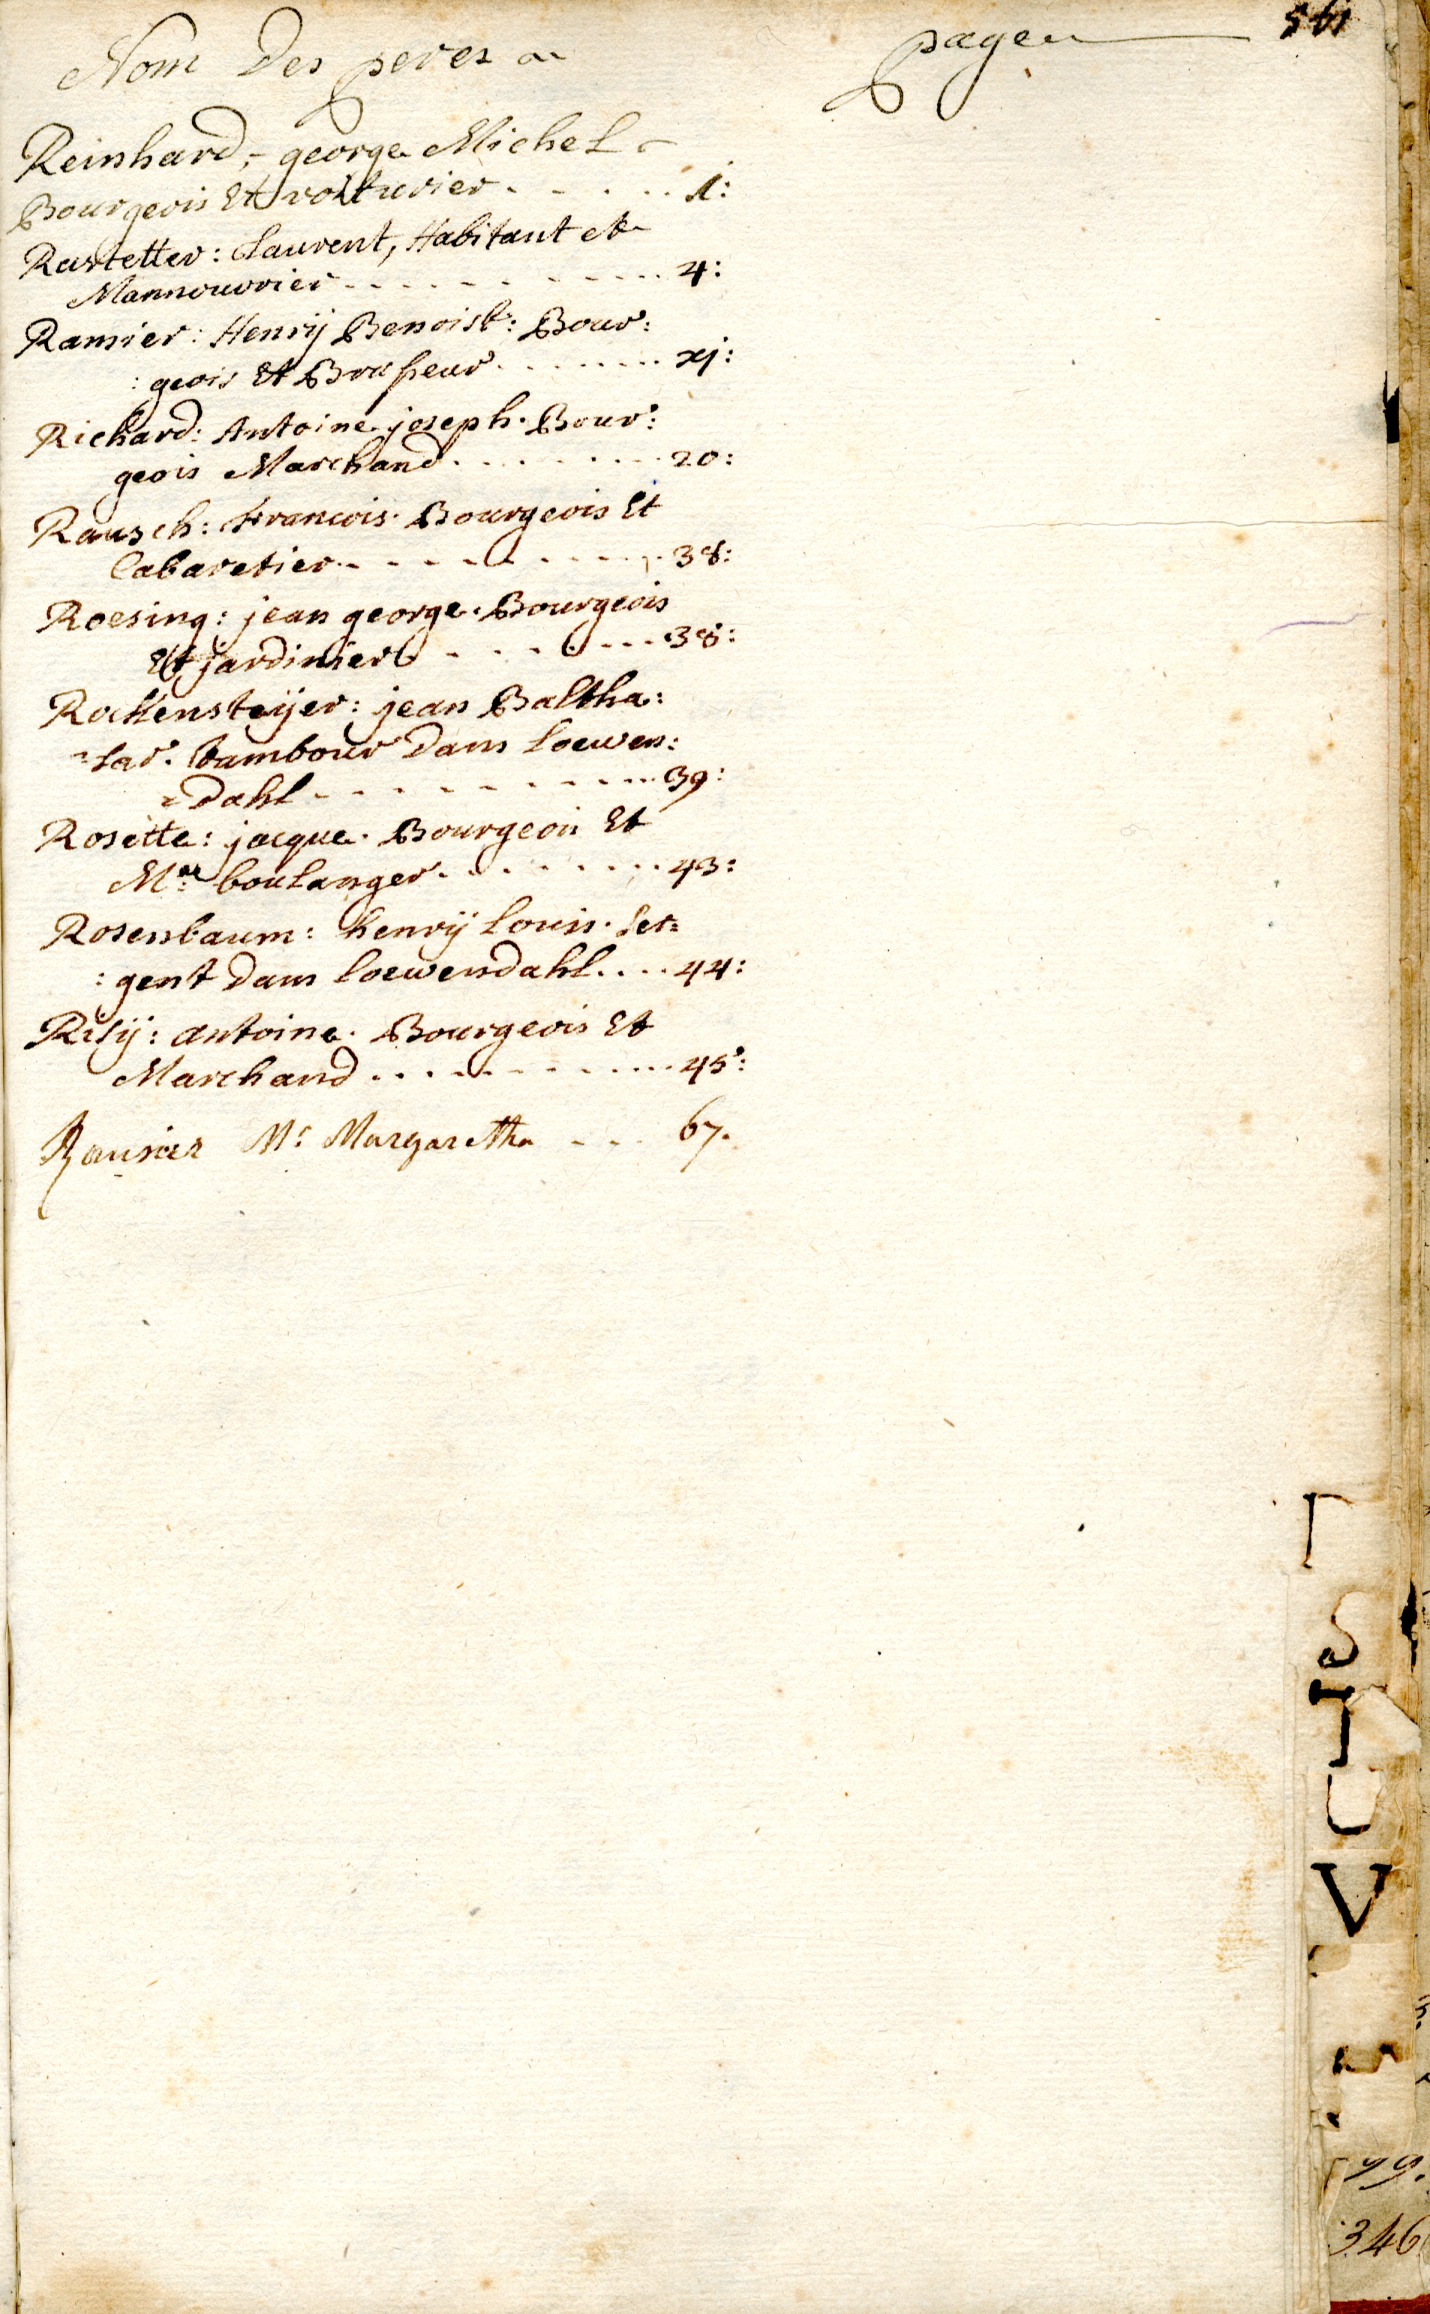 Nom Des peres
page
Reinhard, george Michel
Bourgeois Et voiturier - - - - - 1:
Rastetter: Laurent, Habitant et
Mannouvrier - - - - - - - - - 4:
Ramier: Henrÿ Benoist: Bour:
: geois Et Brasseur - - - - - - xj:
Richard: Antoine joseph. Bour:
geois Marchand - - - - - - - 20:
Rausch: francois. Bourgeois Et
Cabaretier - - - - - - - - - 38:
Roesing: jean george. Bourgeois
Et jardinier - - - - - - - 38:
Rockensteÿer: jean Baltha:
=sar. tambour Dans Loewen:
=Dahl - - - - - - - - - - 39:
Rosette: jacque. Bourgeois Et
Mtre boulanger - - - - - - - 43:
Rosenbaum: henrÿ Louis. Ser=
: gent Dans Loewendahl . . . . 44:
Risÿ: antoine. Bourgeois Et
Marchand - - - - - - - - - - 45:
M: Margaretha - - - 67.
S
T
U
V
99.
346